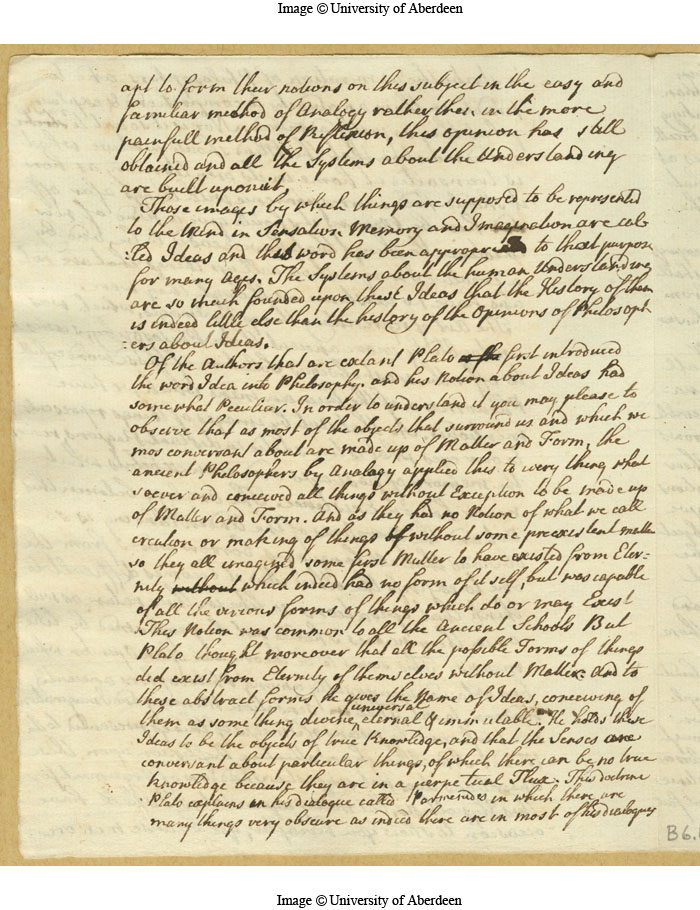 Image © University of Aberdeen
apt to form their notions on this subject in the easy and
familiar method of Analogy rather then in the more
painfull method of Reflexion, this opinion has still
obtained and all the Systems about the Understanding
are built upon it.
Those images by which things are supposed to be represented
to the Mind in Sensation Memory and Imagination are cal-
:led Ideas and that word has been appropriated to that purpose
for many Ages. The Systems about the human Understanding
are so much founded upon these Ideas that the History of them
is indeed little else than the history of the Opinions of Philosoph
:ers about Ideas.
Of the Authors that are extant Plato first introduced
the word Idea into Philosophy. and his Notion about Ideas had
somewhat Peculiar. In order to understand it you may please to
observe that as most of the objects that surround us and which we
mos conversant about are made up of Matter and Form, the
ancient Philosophers by Analogy applied this to every thing what
soever and conceived all things without Exception to be made up
of Matter and Form. And as they had no Notion of what we call
creation or making of things of without some preexistent matter
so they all imagined some first Matter to have existed from Eter-
nity without which indeed had no form of it self, but was capable
of all the various forms of things which do or may Exist
This Notion was common to all the Ancient Schools But
Plato thought moreover that all the possible Forms of things
did exist from Eternity of themselves without Matter. And to
these abstract forms He gives the Name of Ideas, conceiving of
them as some thing divine, universal eternal & immutable. He holds these
Ideas to be the objects of true Knowledge, and that the Senses are
conversant about particular things, of which there can be no true
Knowledge because they are in a perpetual Flux. This doctrine
Plato explains in his dialogue called Parmenides in which there are
many things very obscure as indeed there are in most of his dialogues
B6.
Image © University of Aberdeen